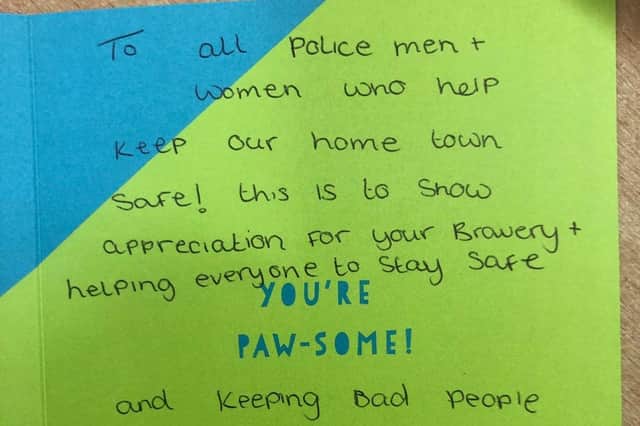 To all Police men +
women who help
Keep our home town
Safe! this is to Show
appreciation for your Bravery +
helping everyone to Stay Safe
YOU'RE
PAW-SOME!
and Keeping Bad People